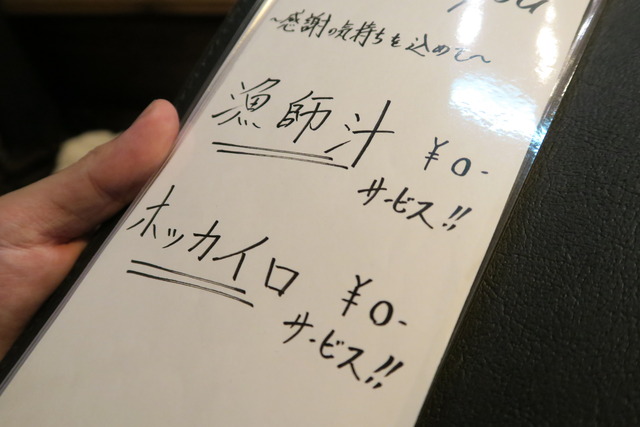 ~感謝の気持ちを込めて~
漁師汁 ¥0-
サービス!!
ホッカイロ ¥0-
サービス!!